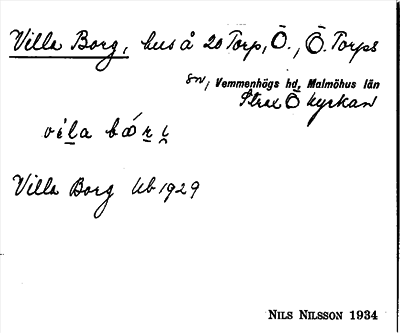 Villa Borg, hus å 20 Torp, Ö., Ö. Torps
sn, Vemmenhögs hd, Malmöhus län
Strax Ö kyrkan
vi̱la bǿṟi̮
Villa Borg Ub 1929
NILS NILSSON 1934